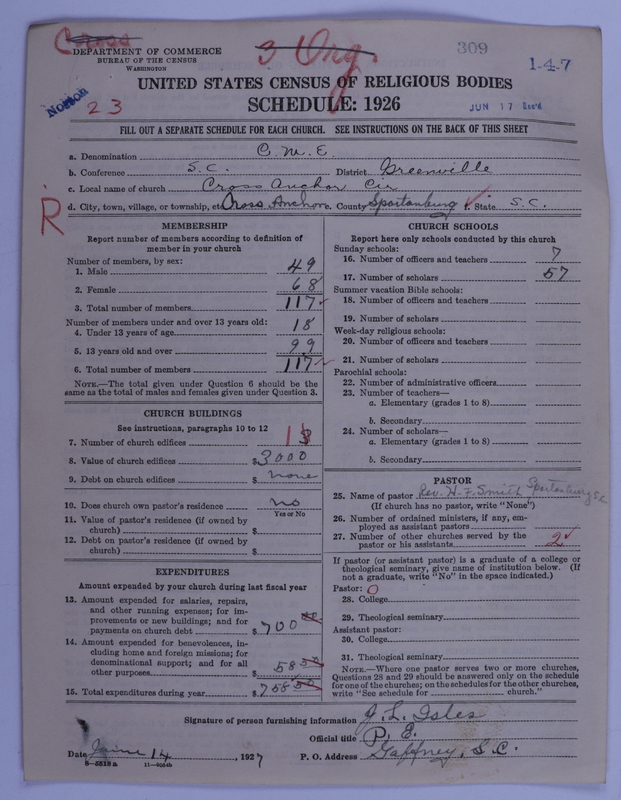 Cross
3 Org.
309
1-4-7
DEPARTMENT OF COMMERCE
BUREAU OF THE CENSUS
WASHINGTON
UNITED STATES CENSUS OF RELIGIOUS BODIES
Norton
23
SCHEDULE: 1926
JUN 17
FILL OUT A SEPARATE SCHEDULE FOR EACH CHURCH. SEE INSTRUCTIONS ON THE BACK OF THIS SHEET
a. Denomination C. M. E.
b. Conference S. C. District Greenville
c. Local name of church Cross Anchor Cir
R
d. City, town, village, or township, etc Cross Anchor e. County Spartanburg f. State S. C.
MEMBERSHIP
Report number of members according to definition of
member in your church
Number of members, by sex:
1. Male 49
2. Female 68
3. Total number of members 117
Number of members under and over 13 years old:
4. Under 13 years of age 18
5. 13 years old and over 99
6. Total number of members 117
NOTE.—The total given under Question 6 should be
same as the total of males and females given under Question 3.
CHURCH BUILDINGS
See instructions, paragraphs 10 to 12
7. Number of church edifices 1 3
8. Value of church edifices $3000
9. Debt on church edifices $ none
10. Does church own pastor's residence no
Yes or No
11. Value of pastor's residence (if owned by
church) $
12. Debt on pastor's residence (if owned by
church) $
EXPENDITURES
Amount expended by your church during last fiscal year
13. Amount expended for salaries, repairs,
and other running expenses; for im-
provements or new buildings; and for
payments on church debt $ 700 00
14. Amount expended for benevolences, in-
cluding home and foreign missions; for
denominational support; and for all
other purposes $ 58 50
15. Total expenditures during year $ 758 50
CHURCH SCHOOLS
Report here only schools conducted by this church
Sunday schools:
16. Number of officers and teachers 7
17. Number of scholars 57
Summer vacation Bible schools:
18. Number of officers and teachers
19. Number of scholars
Week-day religious schools:
20. Number of officers and teachers
21. Number of scholars
Parochial schools:
22. Number of administrative officers
23. Number of teachers—
a. Elementary (grades 1 to 8)
b. Secondary
24. Number of scholars—
a. Elementary (grades 1 to 8)
b. Secondary
PASTOR
25. Name of pastor Rev. H. F. Smith Spartanburg S.C.
(If church has no pastor, write "None")
26. Number of ordained ministers, if any, em-
ployed as assistant pastors
27. Number of other churches served by the
pastor or his assistants 2
If pastor (or assistant pastor) is a graduate of a college or
theological seminary, give name of institution below. (If
not a graduate, write "No" in the space indicated.)
Pastor: 0
28. College
29. Theological seminary
Assistant pastor:
30. College
31. Theological seminary
NOTE.—Where one pastor serves two or more churches,
Questions 28 and 29 should be answered only on the schedule
for one of the churches; on the schedules for the other churches,
write "See schedule for church."
Signature of person furnishing information J. L. Isles
Official title P. E.
Date June 14, 1927 P. O. Address Gaffney, S. C.
8-5518a 11-9024b